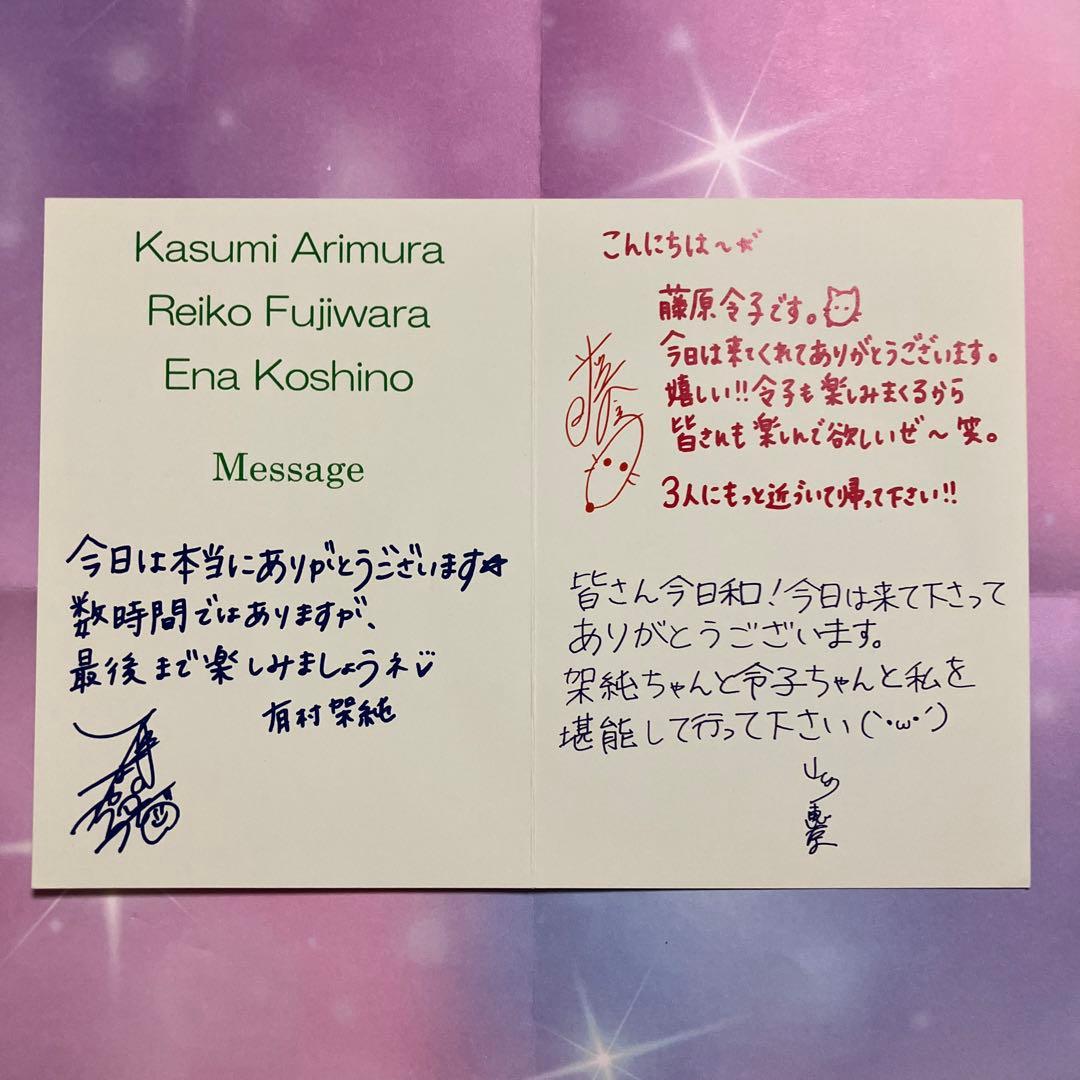 Kasumi Arimura
Reiko Fujiwara
Ena Koshino
Message
今日は本当にありがとうございます☆
数時間ではありますが、
最後まで楽しみましょうネ♡
有村架純
こんにちは〜
藤原令子です。
今日は来てくれてありがとうございます。
嬉しい!!令子も楽しみまくるから
皆さんも楽しんで欲しいぜ〜笑。
3人にもっと近づいて帰って下さい!!
皆さん今日和!今日は来て下さって
ありがとうございます。
架純ちゃんと令子ちゃんと私を
堪能して行って下さい(`・ω・´)